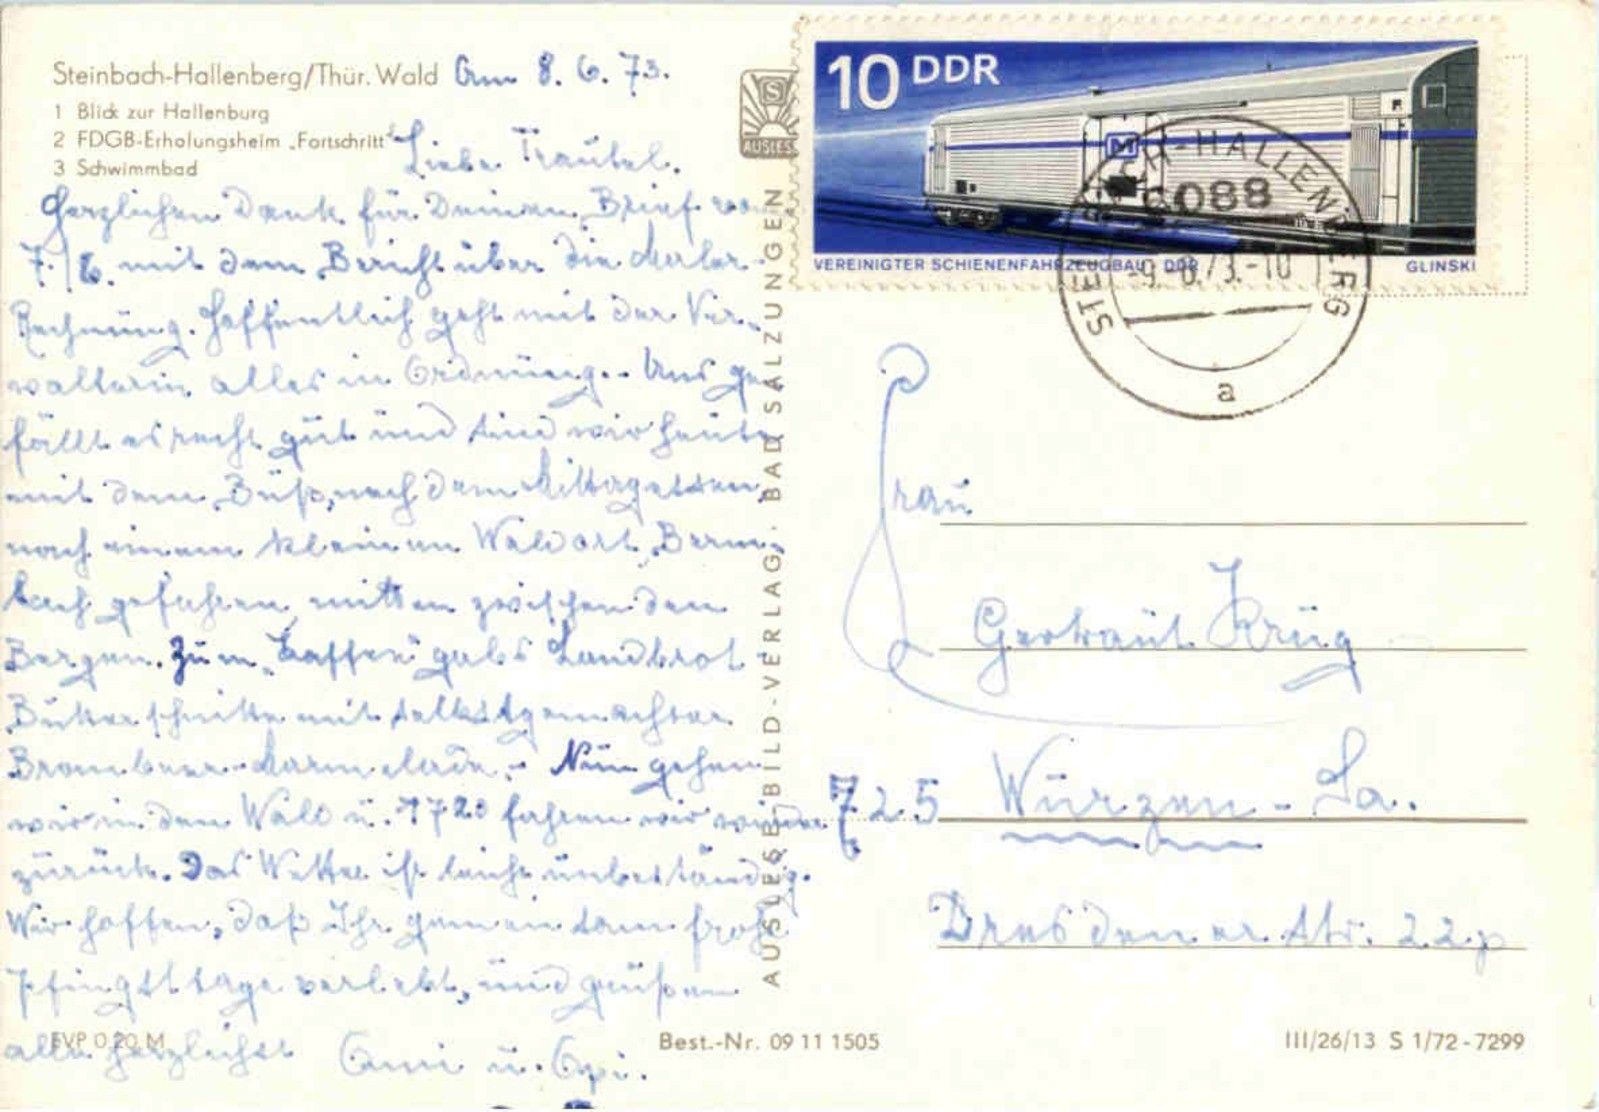 Steinbach-Hallenberg/Thür. Wald Am 8.6.73.
1 Blick zur Hallenburg
2 FDGB-Erholungsheim „Fortschritt“
3 Schwimmbad
Liebe Traudel.
Herzlichen Dank für Deinen Brief vom
7./6. mit dem Bericht über die Maler-
Rechnung. Hoffentlich geht mit der Ver-
walterin alles in Ordnung. - Uns ge-
fällt es recht gut und sind wir heute
mit dem Büß, nach dem Mittagessen,
nach einem kleinen Waldort, Berm-
bach gefahren, mitten zwischen den
Bergen. Zum Kaffee gab's Landbrot-
Butterschnitte mit selbstgemachter
Brombeer-Marmelade. - Nun gehen
wir in den Wald u. 17 20 fahren wir wieder
zurück. Das Wetter ist leicht unbeständig.
Wir hoffen, daß Ihr gemeinsam frohe
Pfingsttage verlebt, und grüßen
alle herzlichst Omi u. Opi.
EVP 0,20 M
Best.-Nr. 09 11 1505
III/26/13 S 1/72-7299
AUSLESE-BILD-VERLAG · BAD SALZUNGEN
S
AUSLESE
10 DDR
M
VEREINIGTER SCHIENENFAHRZEUGBAU DDR
GLINSKI
STEINBACH-HALLENBERG
6088
-9.-6.73.-10
a
Frau
Gertraut Krüg
725 Würzen - Sa.
Dresdener Str. 22p